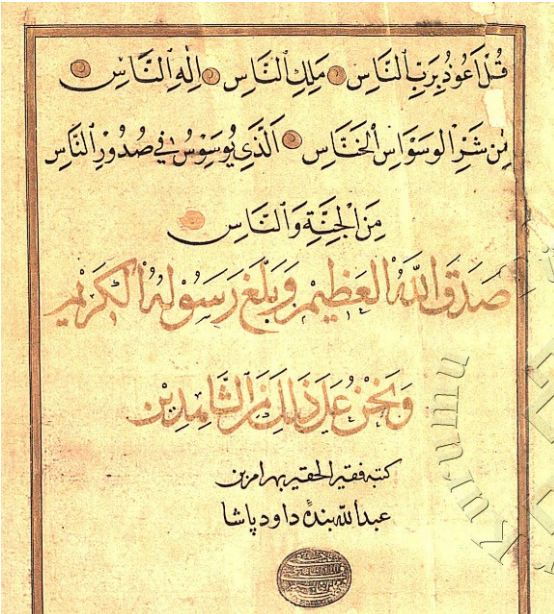 قُلْ اَعُوذُ بِرَبِّ ٱلنَّاسِ مَلِكِ ٱلنَّاسِ اِلٰهِ ٱلنَّاسِ
مِنْ شَرِّ الوَسْوَاسِ الْخَنَّاسِ اَلَّذِي يُوَسْوِسُ فِي صُدُورِ ٱلنَّاسِ
مِنَ الْجِنَّةِ وَٱلنَّاسِ
صَدَقَ اللّٰهُ العَظِيمُ وَبَلَّغَ رَسُولُهُ الْكَرِيمُ
وَنَحْنُ عَلَى ذٰلِكَ مِنَ ٱلشَّاهِدِينَ
كتبه فقير الحقير بهرام بن
عبد الله بنده داود پاشا
Kurumu